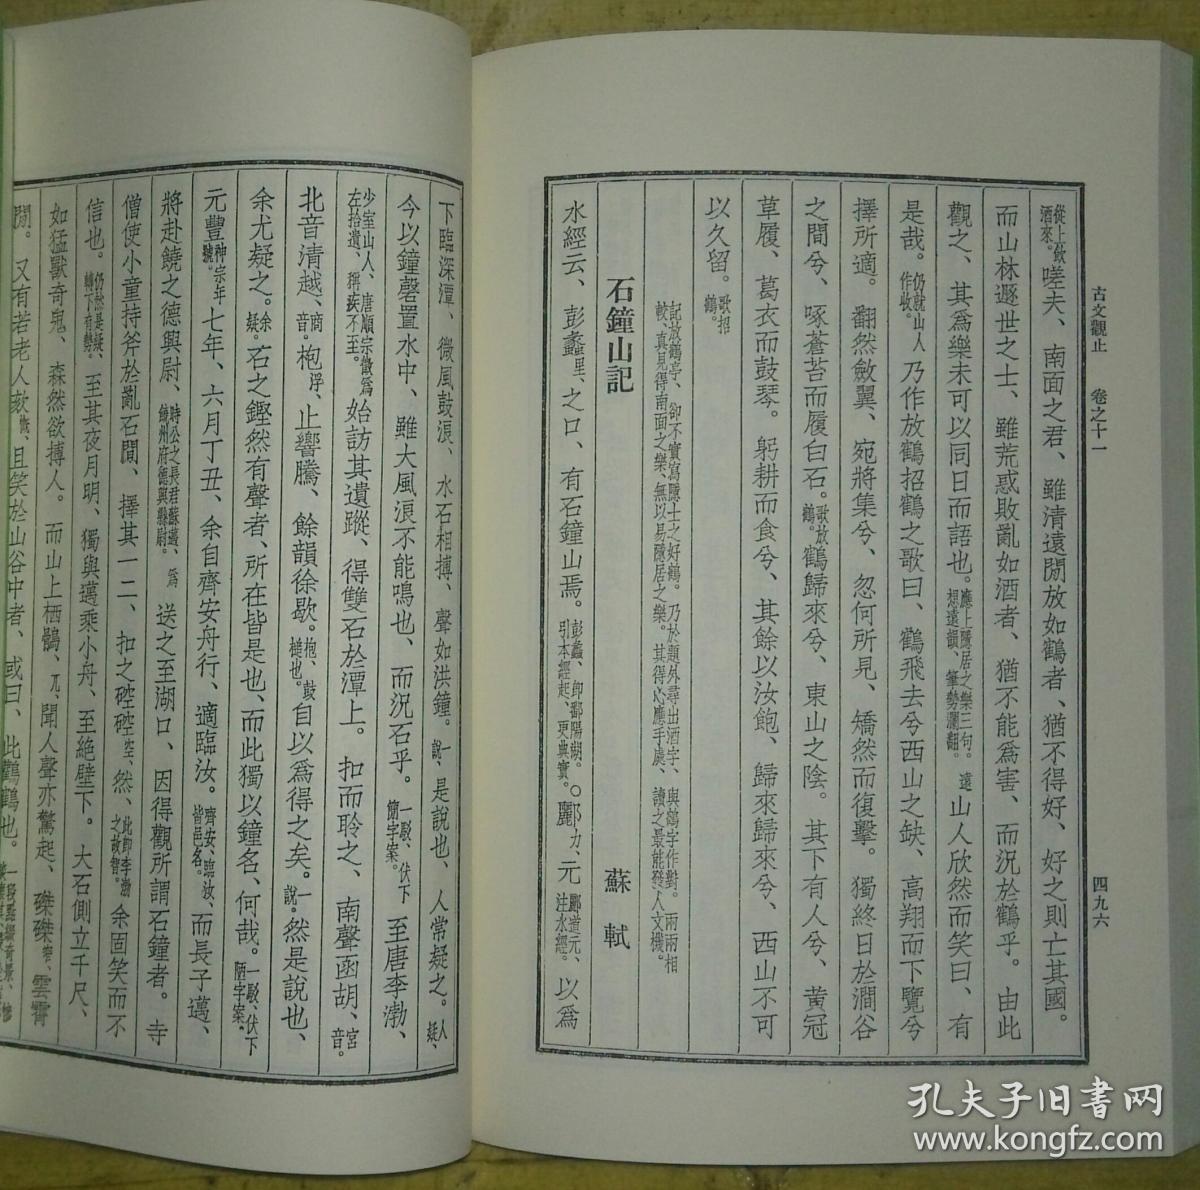 古文觀止　卷之十一　四九六
從上飲酒來。嗟夫、南面之君、雖清遠閒放如鶴者、猶不得好、好之則亡其國。
而山林遯世之士、雖荒惑敗亂如酒者、猶不能爲害、而況於鶴乎。由此
觀之、其爲樂未可以同日而語也。應上隱居之樂三句。遠想遠韻、筆勢瀾翻。山人欣然而笑曰、有
是哉。仍就山人作收。乃作放鶴招鶴之歌曰、鶴飛去兮西山之缺、高翔而下覽兮
擇所適。翻然斂翼、宛將集兮、忽何所見、矯然而復擊。獨終日於澗谷
之間兮、啄蒼苔而履白石。歌放鶴。鶴歸來兮、東山之陰。其下有人兮、黃冠
草履、葛衣而鼓琴。躬耕而食兮、其餘以汝飽、歸來歸來兮、西山不可
以久留。歌招鶴。
記放鶴亭、卻不實寫隱士之好鶴。乃於題外尋出酒字、與鶴字作對。兩兩相
較、真見得南面之樂、無以易隱居之樂。其得心應手處、讀之最能發人文機。
石鐘山記　蘇軾
水經云、彭蠡里、之口、有石鐘山焉。彭蠡、卽鄱陽湖。引本經起、更典實。〇酈力、元酈道元、注水經。以爲
下臨深潭、微風鼓浪、水石相搏、聲如洪鐘。一說、是說也、人常疑之。人疑、
今以鐘磬置水中、雖大風浪不能鳴也、而況石乎。一駁、伏下簡字案。至唐李渤、
少室山人、唐順宗徵爲左拾遺、稱疾不至。始訪其遺蹤、得雙石於潭上。扣而聆之、南聲函胡、宮音。
北音清越、商音。枹浮、止響騰、餘韻徐歇。枹、鼓槌也。自以爲得之矣。一說。然是說也、
余尤疑之。余疑。石之鏗然有聲者、所在皆是也、而此獨以鐘名、何哉。一駁、伏下陋字案、
元豐神宗年號。七年、六月丁丑、余自齊安舟行、適臨汝。齊安、臨汝、皆邑名。而長子邁、
將赴饒之德興尉、時公之長君蘇邁、爲饒州府德興縣尉。送之至湖口、因得觀所謂石鐘者。寺
僧使小童持斧於亂石間、擇其一二、扣之硿硿空、然、此卽李渤之故智。余固笑而不
信也。仍然是疑、轉下有勢。至其夜月明、獨與邁乘小舟、至絕壁下。大石側立千尺、
如猛獸奇鬼、森然欲搏人。而山上栖鶻、兀、聞人聲亦驚起、磔磔窄、雲霄
間。又有若老人欬慨、且笑於山谷中者、或曰、此鸛鶴也。
孔夫子旧书网
www.kongfz.com